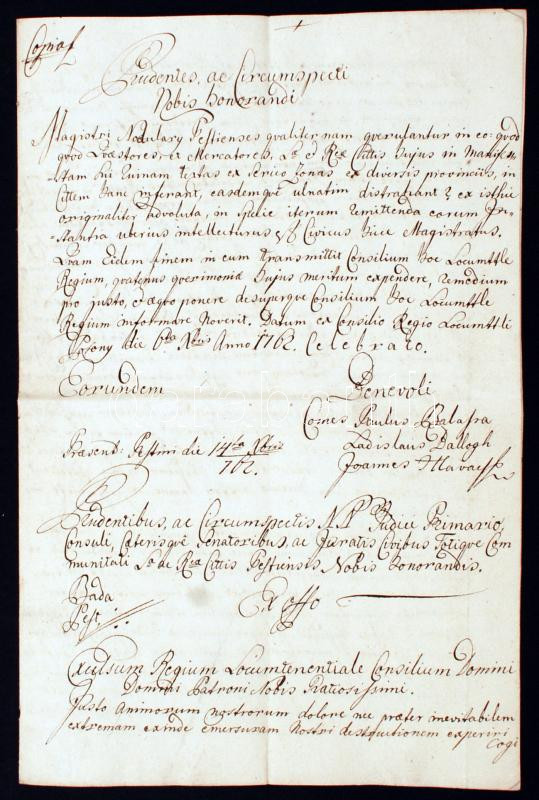 Copia
Prudentes, ac Circumspecti
Nobis honorandi
Magistri Nodulary Pestienses qualiter nam querulantur in eo: quod
quod Quaestores et Mercatores, Lae et Rae Cittis hujus in Manife-
stam sui ruinam textas ex serico Zonas ex diversis provinciis, in
Cittem hanc inferant, easdemque ulnatim distrahant et ex isthic
originaliter advoluta, in specie iterum remittenda earum
stantia uberius intellecturus Civicus hice Magistratus.
Quam Eidem finem in eum transmittit Consilium hoc Locumttle
Regium, quatenus querimoniae hujus meritum expendere, remedium
pro justo, et aequo ponere desuperque Consilium hoc Locumttle
Regium informare Noverit. Datum ex Consilio Regio Locumttli
Posony die 6ta 9bris Anno 1762. Celebrato.
Eorundem
Benevoli
Comes Paulus Balassa
Ladislaus Balogh
Joannes Hlavacs
Praesent: Pestini die 14ta 9bris
762.
Prudentibus, ac Circumspectis N. N. Judici Primario,
Consuli, Caeterisque Senatoribus, ac Juratis Civibus Totique Com
munitati Lae ac Rae Cittis Pestiensis Nobis honorandis.
Buda
Pest.
Ex offo
Excelsum Regium Locumtenentiale Consilium Domini
Domini Patroni Nobis Gratiosissimi.
Justo Animorum nostrorum dolore nec praeter inevitabilem
extremam exinde emersuram Nostri destructionem experiri
cogi